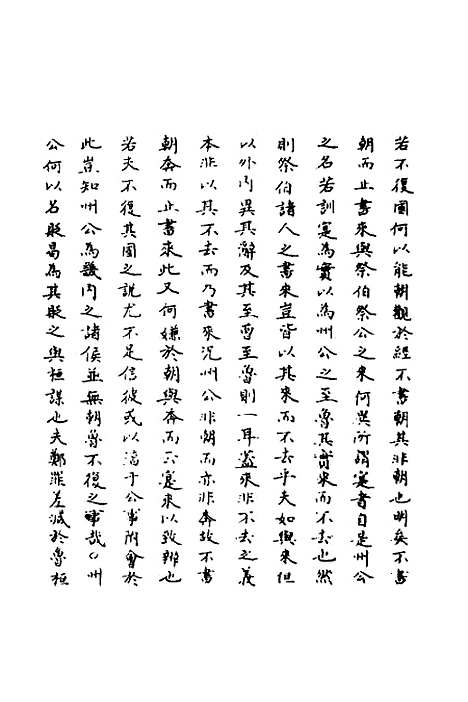 若不復國何以能朝觀於經不書朝其非朝也明矣不書
朝而止書來與祭伯祭公之來何異所謂寔者自是州公
之名若訓寔為實以為州公之至魯其實來而不去也然
則祭伯諸人之書來豈皆以其來而不去乎夫如與來但
以外內異其辭及其至魯至魯則一耳蓋來非不去之義
本非以其不去而乃書來況州公非朝而亦非奔故不書
朝奔而止書來此又何嫌於朝與奔而云寔來以致辨也
若夫不復其國之說尤不足信彼或以淳于公事附會於
此豈知州公為畿內之諸侯並無朝魯不復之事哉州
公何以名貶曷為其貶之與桓謀也夫鄭罪差減於魯桓